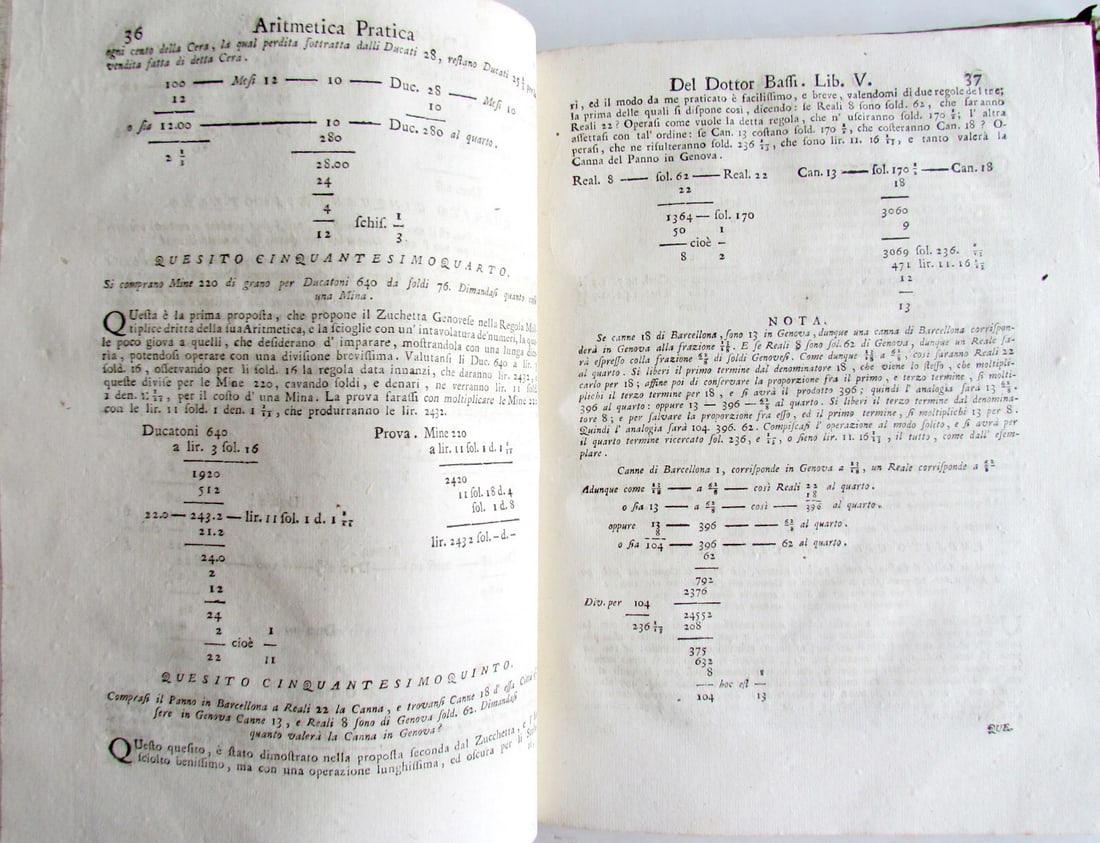 36 Aritmetica Pratica
ogni cento della Cera, la qual perdita ſottratta dalli Ducati 28, reſtano Ducati 25
vendita fatta di detta Cera.
100 — Meſi 12 — 10 — Duc. 28 — Meſi 10
12 10
o ſia 12.00 — 10 — Duc. 280 al quarto.
280
2 1/3
28.00
24
4
12 ſchiſ. 1/3
QUESITO CINQUANTESIMOQUARTO.
Si comprano Mine 220 di grano per Ducatoni 640 da ſoldi 76. Dimandaſi quanto
una Mina.
QUeſta è la prima propoſta, che propone il Zuchetta Genoveſe nella Regola
tiplice dritta della ſua Aritmetica, e la ſcioglie con un' intavolatura de' numeri,
le poco giova a quelli, che deſiderano d' imparare, moſtrandola con una lunga
ria, potendoſi operare con una diviſione breviſſima. Valutanſi li Duc. 640 a lir. 3
ſold. 16, oſſervando per li ſold. 16 la regola data innanzi, che daranno lir. 2432,
queſte diviſe per le Mine 220, cavando ſoldi, e denari, ne verranno lir. 11 ſold.
1 den. 1 1/11, per il coſto d' una Mina. La prova faraſſi con moltiplicare le Mine 220
con le lir. 11 ſold. 1 den. 1 1/11, che produrranno le lir. 2432.
Ducatoni 640 Prova. Mine 220
a lir. 3 ſol. 16 a lir. 11 ſol. 1 d. 1 1/11
1920 2420
512 11 ſol. 18 d. 4
ſol. 1 d. 8
22.0 — 243.2 — lir. 11 ſol. 1 d. 1 1/11
21.2 lir. 2432 ſol. - d. -
24.0
2
12
24
2 1
— cioè —
22 11
QUESITO CINQUANTESIMOQUINTO.
Compraſi il Panno in Barcellona a Reali 22 la Canna, e trovanſi Canne 18 d' eſſa
ſere in Genova Canne 13, e Reali 8 ſono di Genova ſold. 62. Dimandaſi
quanto valerà la Canna in Genova?
QUeſto queſito, è ſtato dimoſtrato nella propoſta ſeconda dal Zucchetta, e
ſciolto beniſſimo, ma con una operazione lunghiſſima, ed oſcura per li
Del Dottor Baſſi. Lib. V. 37
ri, ed il modo da me praticato è faciliſſimo, e breve, valendomi di due regole del tre;
la prima delle quali ſi diſpone così, dicendo: ſe Reali 8 ſono ſold. 62, che ſaranno
Reali 22? Operaſi come vuole la detta regola, che n' uſciranno ſold. 170 1/2; l' altra
aſſettaſi con tal' ordine: ſe Can. 13 coſtano ſold. 170 1/2, che coſteranno Can. 18? O-
peraſi, che ne riſulteranno ſold. 236 1/13, che ſono lir. 11. 16 1/13, e tanto valerà la
Canna del Panno in Genova.
Real. 8 — ſol. 62 — Real. 22 Can. 13 — ſol. 170 1/2 — Can. 18
22 18
1364 — ſol. 170 3060
50 1 9
— cioè —
8 2 3069 ſol. 236. 1/13
471 lir. 11. 16 1/13
12
1
13
NOTA.
Se canne 18 di Barcellona, ſono 13 in Genova, dunque una canna di Barcellona corriſpon-
derà in Genova alla frazione 13/18. E ſe Reali 8 ſono ſol. 62 di Genova, dunque un Reale ſa-
rà eſpreſſo colla frazione 62/8 di ſoldi Genoveſi. Come dunque 13/18 a 62/8, così ſaranno Reali 22
al quarto. Si liberi il primo termine dal denominatore 18, che viene lo ſteſſo, che moltipli-
carlo per 18; affine poi di conſervare la proporzione fra il primo, e terzo termine, ſi molti-
plichi il terzo termine per 18, e ſi avrà il prodotto 396; quindi l' analogia ſarà 13 62/8.
396 al quarto: oppure 13 — 396 — 62/8 al quarto. Si liberi il terzo termine dal denomina-
tore 8; e per ſalvare la proporzione fra eſſo, ed il primo termine, ſi moltiplichi 13 per 8.
Quindi l' analogia ſarà 104. 396. 62. Compiſcaſi l' operazione al modo ſolito, e ſi avrà per
il quarto termine ricercato ſol. 236, e 1/13, o ſieno lir. 11. 16 1/13, il tutto, come dall' eſem-
plare.
Canne di Barcellona 1, corriſponde in Genova a 13/18, un Reale corriſponde a 62/8
Adunque come 13/18 — a 62/8 — così Reali 22 al quarto.
18
o ſia 13 — a 62/8 — così — 396 al quarto.
oppure 13 — 396 — 62/8 al quarto.
8
o ſia 104 — 396 — 62 al quarto.
62
792
2376
Div. per 104
24552
236 1/13 208
375
632
8 1
— hoc eſt —
104 13
QUE-